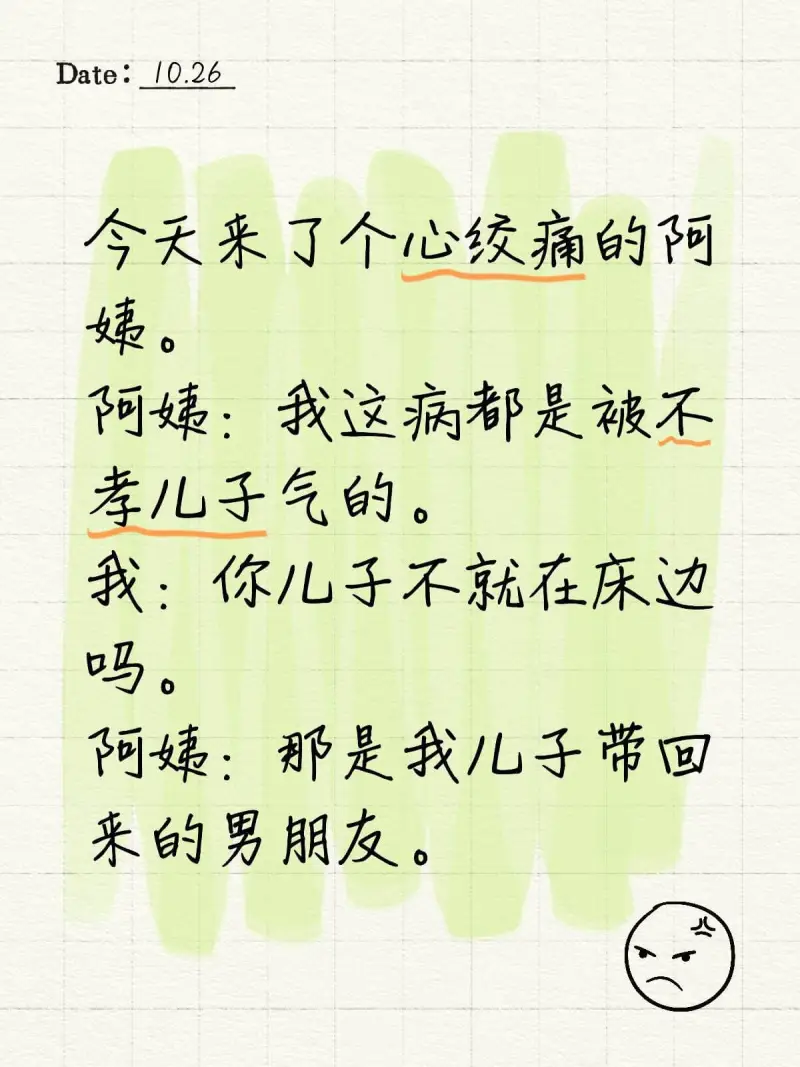 Date: 10.26
今天来了个心绞痛的阿
姨。
阿姨：我这病都是被不
孝儿子气的。
我：你儿子不就在床边
吗。
阿姨：那是我儿子带回
来的男朋友。